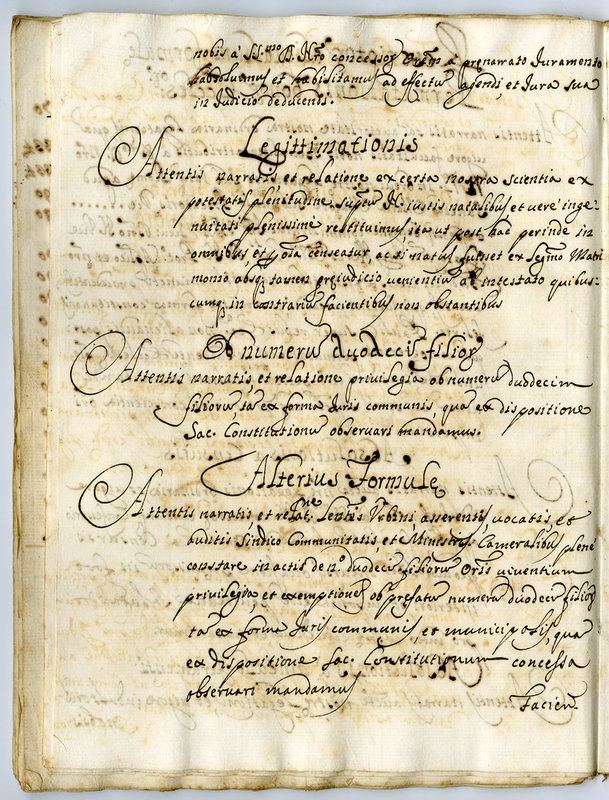 nobis à SS.mo D. Nro concessor Orem à prenarrato Iuramento
habsolvimus et habilitamus ad effectus agendi, et Iura sua
in Iudicio deducendi.
Legittimationis
Attentis narratis et relatione ex certa nostra scientia ex
potestatis plenitudine supctum N. iustis natalibus et vere inge-
nuitati plenissimè restituimus, ita ut post hac perinde in
omnibus et censeatur, ac si natus fuisset ex legmo Matri
monio absq tamen prejudicio venientium ab intestato quibus-
cumq in contrarium facientibus non obstantibus
Ob numerum duodecim filior
Attentis narratis, et relatione privilegia ob numerum duodecim
filiorum tam ex forma Iuris communis, quam ex dispositione
Sac. Constitutionum observari mandamus.
Alterius Formule
Attentis narratis et relatne Urbini asserentis, vocatis, et
auditis Sindico Communitatis, et Ministris Cameralibus plenè
constare in actis de no. duodecim filiorum Oris viventium
privilegia, et exemptiones ob prefatum numerum duodecim filior
tam ex forma Iuris communis, et municipalis, quam
ex dispositione Sac. Constitutionum concessa
observari mandamus
Facien